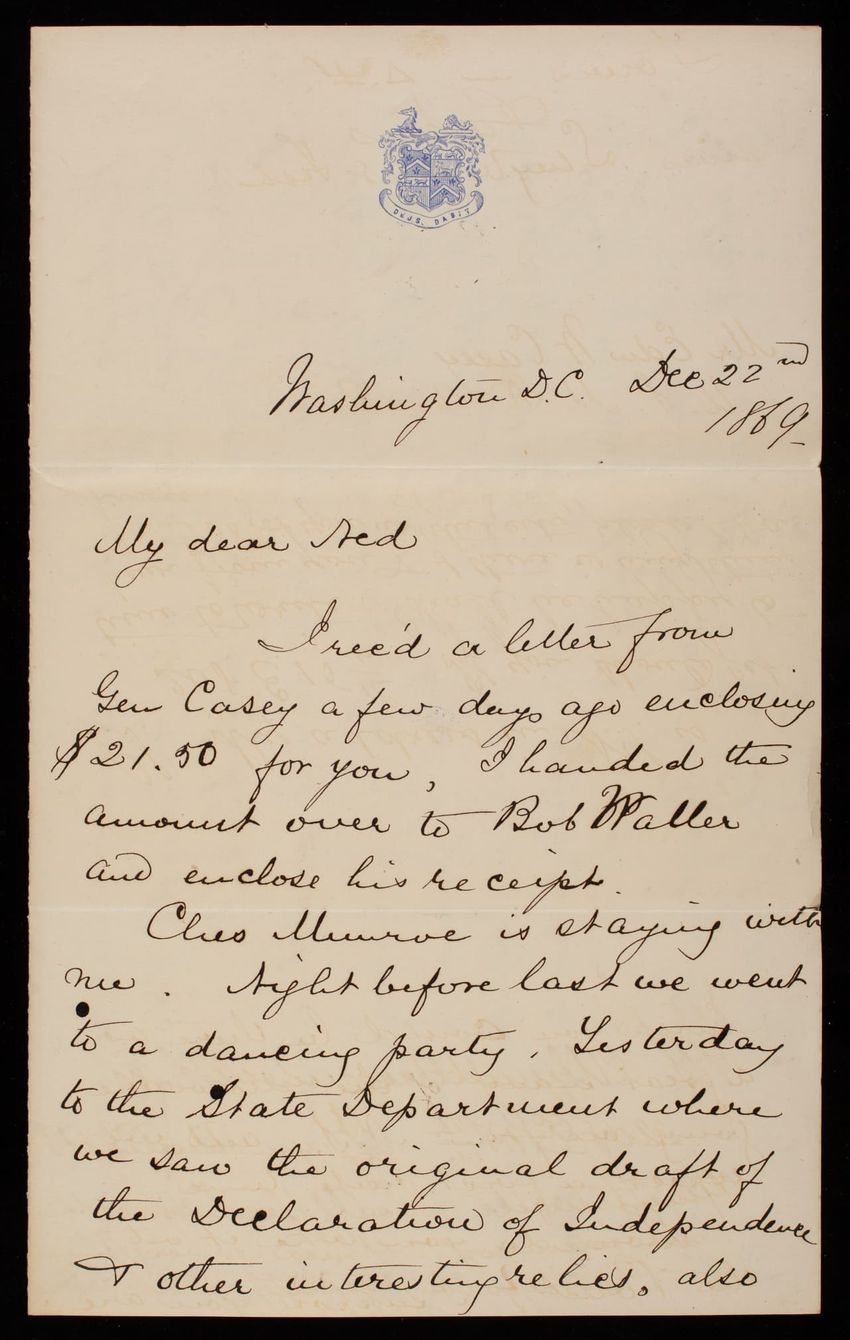 DEUS DABIT
Washington D.C. Dec 22nd
1869
My dear Ned
I rec'd a letter from
Gen Casey a few days ago enclosing
$21.50 for you, I handed the
amount over to Bob Waller
and enclose his receipt.
Ches Munroe is staying with
me. Night before last we went
to a dancing party. Yesterday
to the State Department where
we saw the original draft of
the Declaration of Independence
& other interesting relics. also